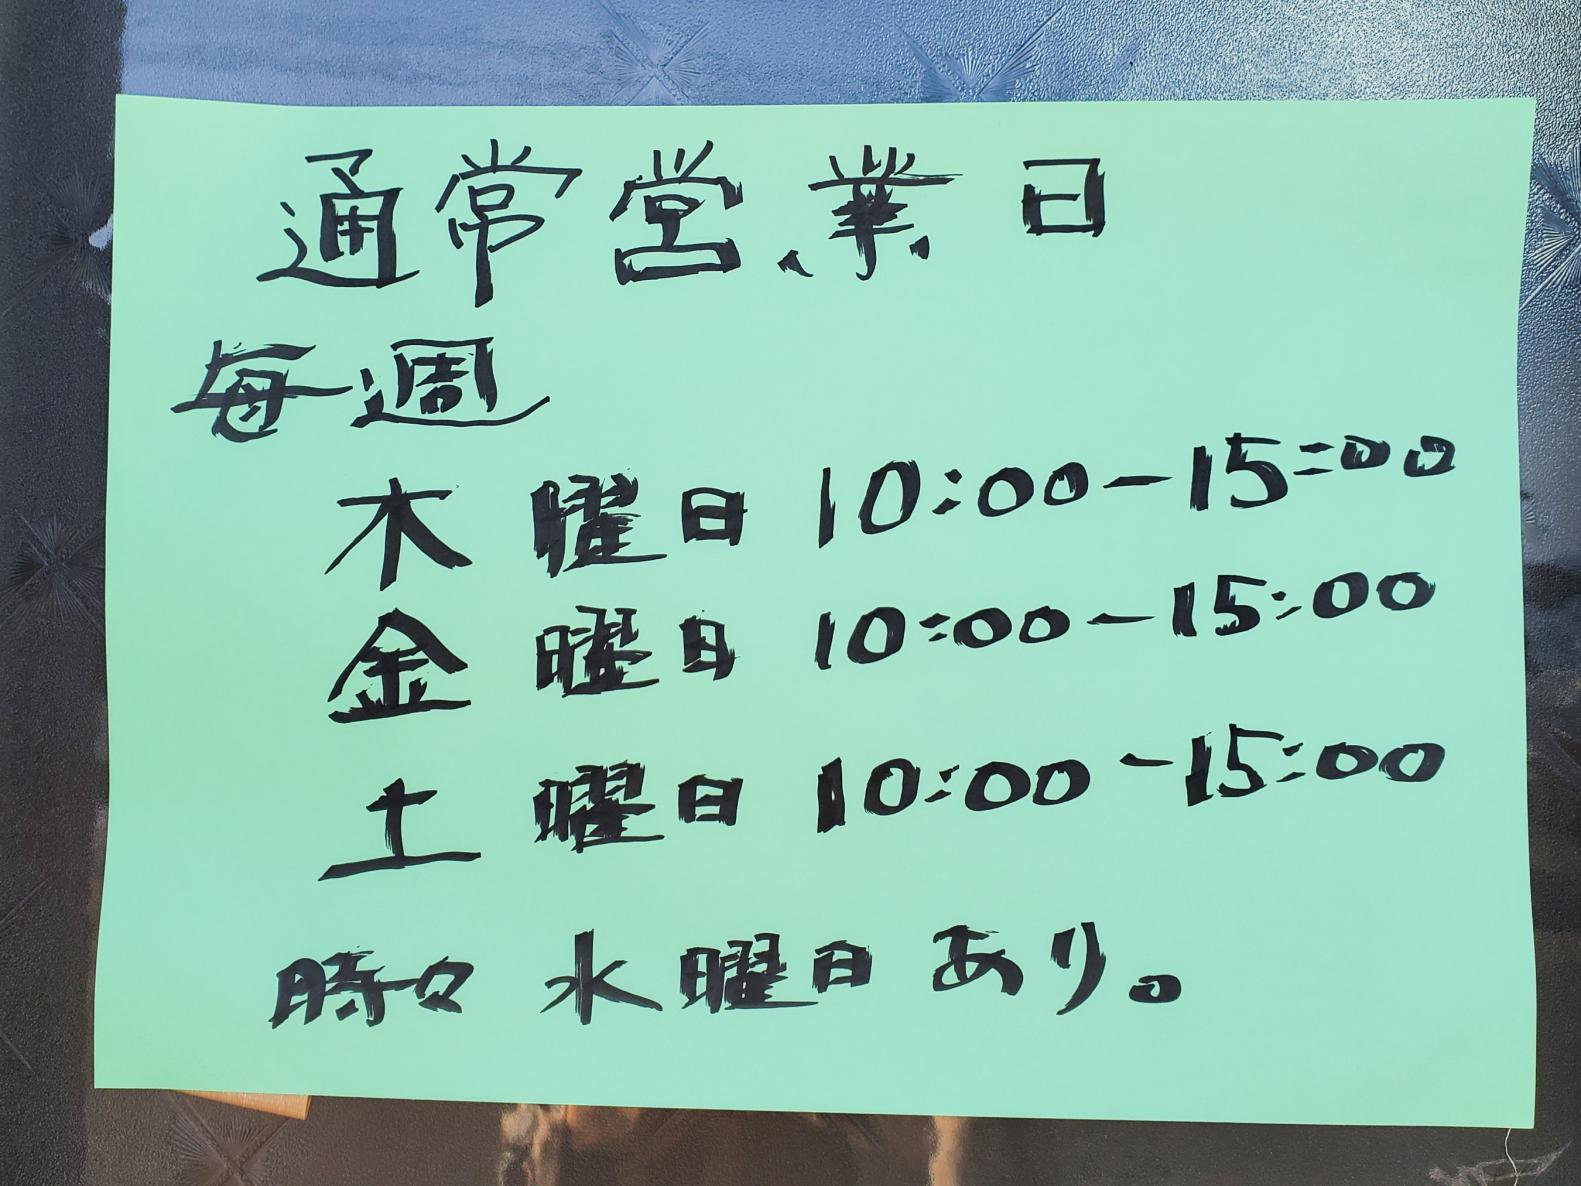 通常営業日
毎週
木曜日 10:00-15:00
金曜日 10:00-15:00
土曜日 10:00-15:00
時々 水曜日あり。